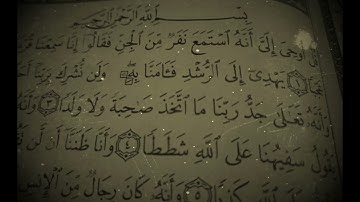 بِسْمِ ٱللَّهِ ٱلرَّحْمَٰنِ ٱلرَّحِيمِ
أُوحِيَ إِلَيَّ أَنَّهُ ٱسْتَمَعَ نَفَرٌ مِّنَ ٱلْجِنِّ فَقَالُوٓا۟ إِنَّا سَمِعْنَا
عَجَبًا ١ يَهْدِىٓ إِلَى ٱلرُّشْدِ فَـَٔامَنَّا بِهِۦ ۖ وَلَن نُّشْرِكَ بِرَبِّنَآ
وَأَنَّهُۥ تَعَٰلَىٰ جَدُّ رَبِّنَا مَا ٱتَّخَذَ صَٰحِبَةً وَلَا وَلَدًا ٣ وَأَنَّهُۥ
يَقُولُ سَفِيهُنَا عَلَى ٱللَّهِ شَطَطًا ٤ وَأَنَّا ظَنَنَّآ أَن لَّن
ٱللَّهِ كَذِبًا ٥ وَأَنَّهُۥ كَانَ رِجَالٌ مِّنَ ٱلْإِنسِ